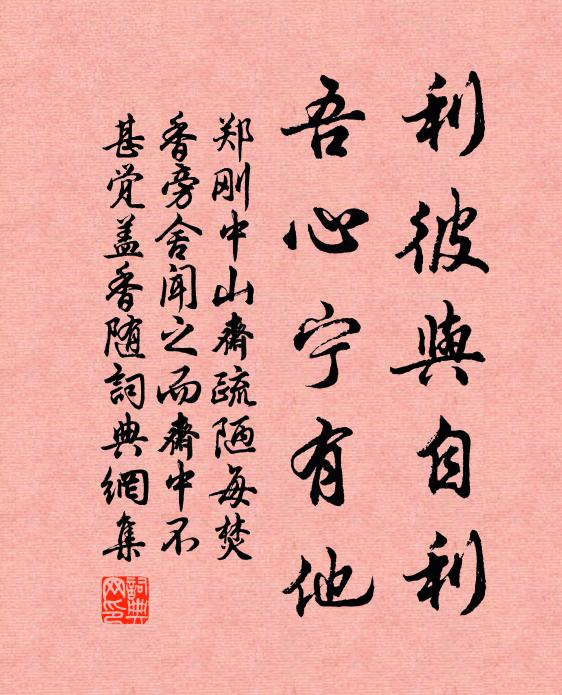 利彼與自利
吾心宁有他
郑刚中山斋疏陋每焚
香旁舍闻之而斋中不
甚觉盖香随詞典網集
詞典网印